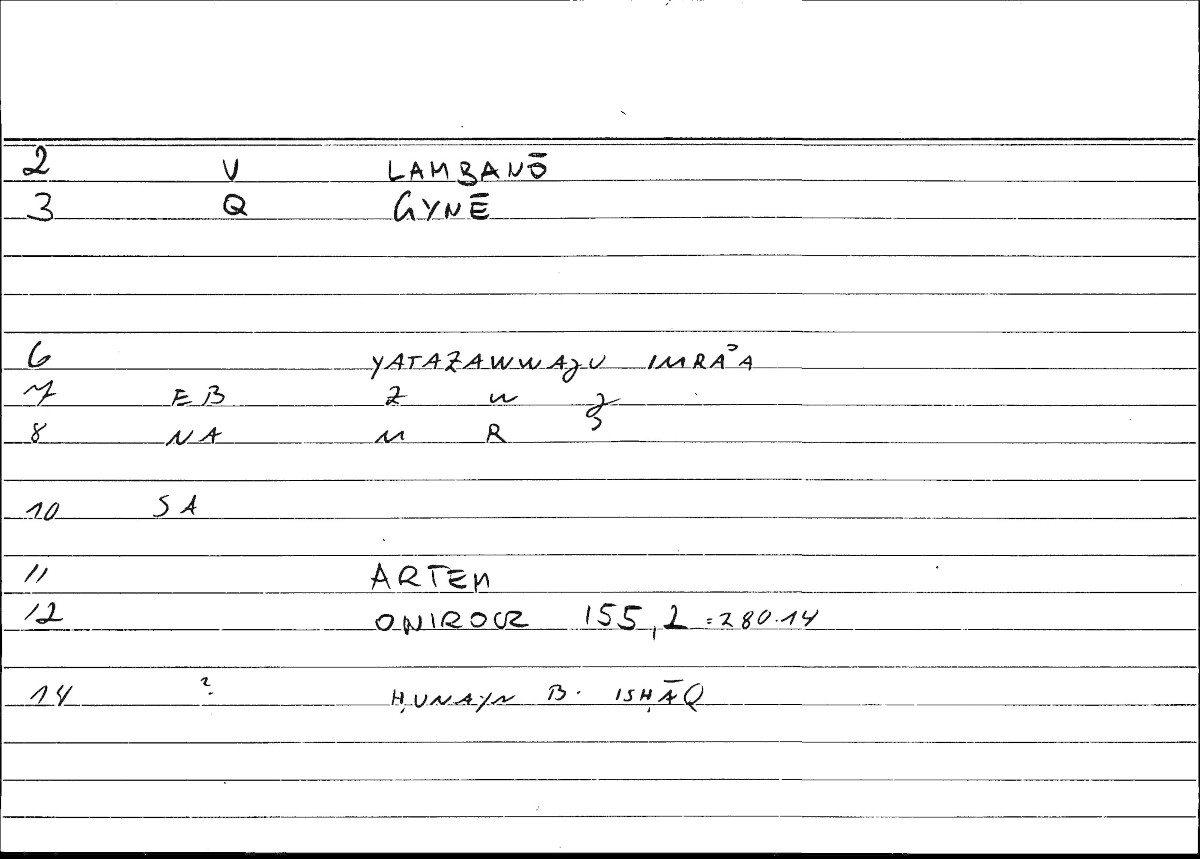 2 V LAMBANŌ
3 Q GYNĒ
6 YATAZAWWAǧU IMRAʾA
7 EB Z W ǧ
8 NA M R ʾ
10 SA
11 ARTEM
12 ONIROCR 155,2 = 280.14
14 ? ḤUNAYN B. ISḤĀQ